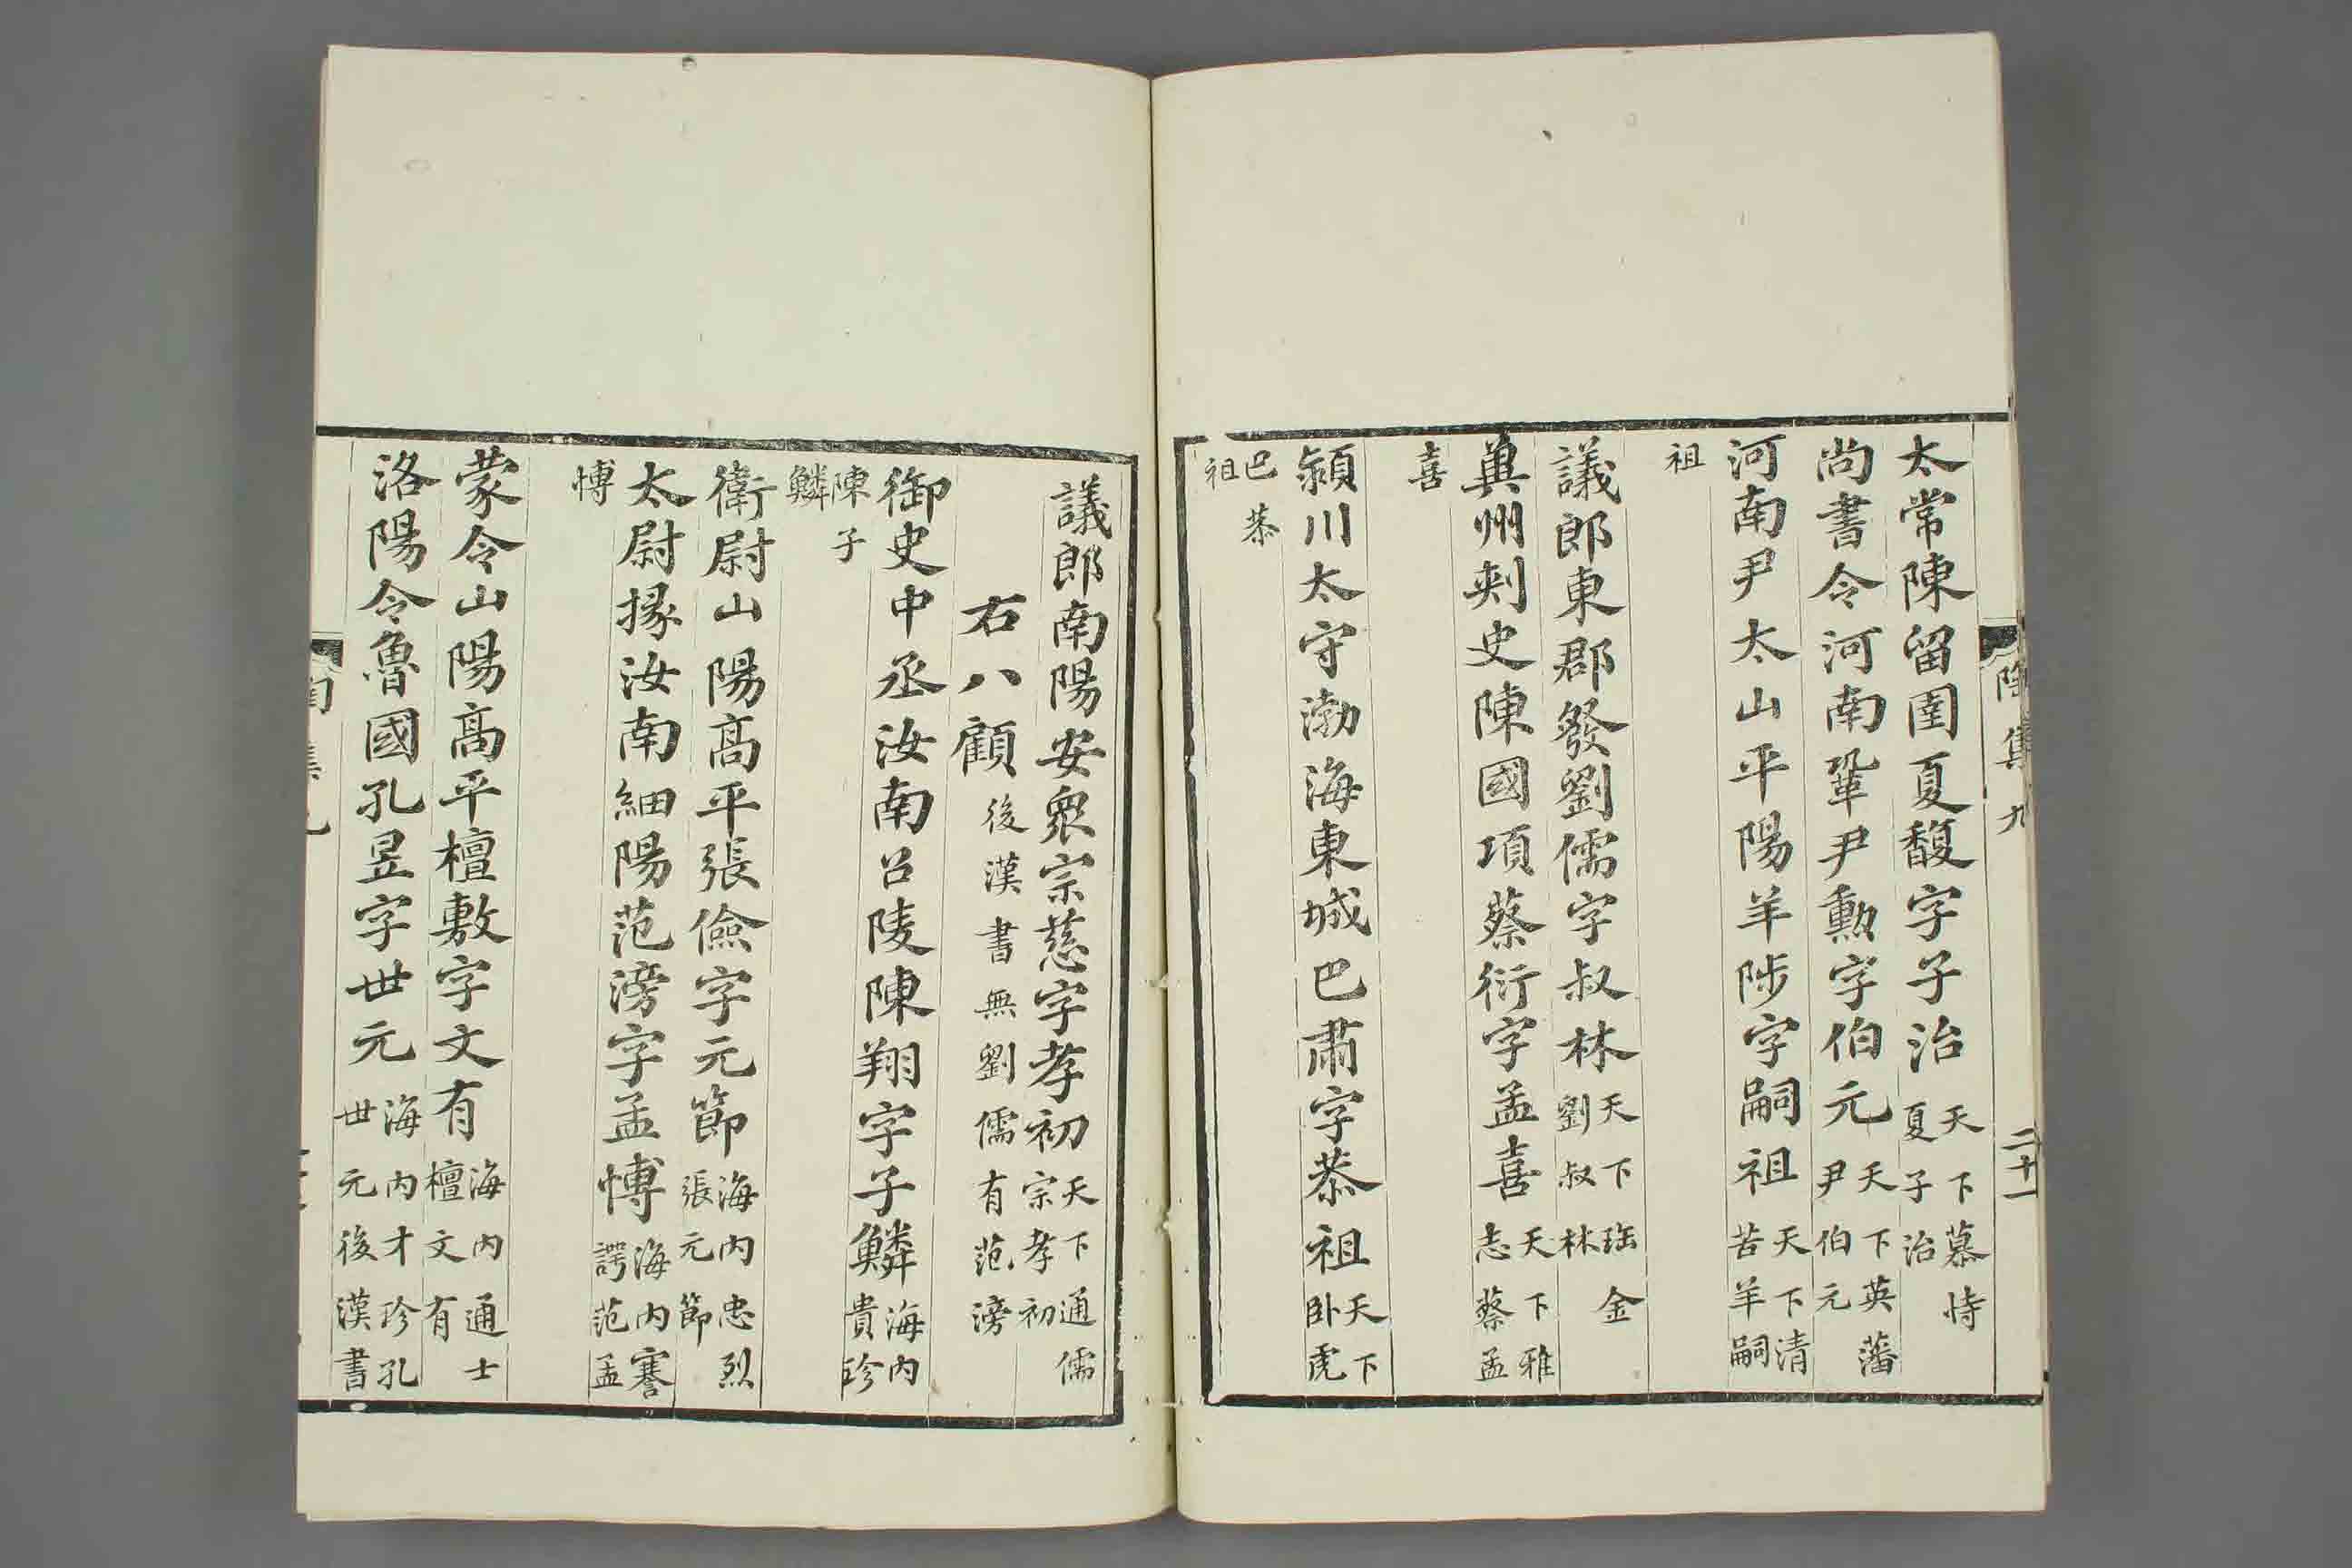 陶集九 二十一
太常陳留圉夏馥字子治天下慕恃夏子治
尚書令河南鞏尹勳字伯元天下英藩尹伯元
河南尹太山平陽羊陟字嗣祖天下清苦羊嗣
祖
議郎東郡發劉儒字叔林天下珤金劉叔林
兾州刾史陳國項蔡衍字孟喜天下雅志蔡孟
喜
潁川太守渤海東城巴肅字恭祖天下卧虎
巴恭祖
議郎南陽安衆宗慈字孝初天下通儒宗孝初
右八顧後漢書無劉儒有范滂
御史中丞汝南召陵陳翔字子鱗海內貴珍
陳子鱗
衛尉山陽髙平張儉字元節海內忠烈張元節
太尉掾汝南細陽范滂字孟博海內謇諤范孟
博
蒙令山陽髙平檀敷字文有海內通士檀文有
洛陽令魯國孔昱字世元海內才珍孔世元後漢書